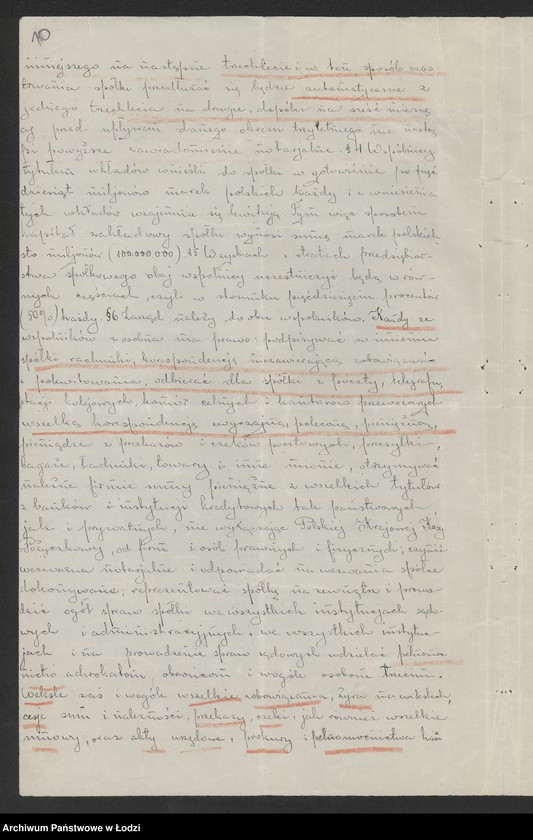 10
niniejszego na następne trzechlecie i w ten sposób czas
trwania spółki przedłużać się będzie automatycznie z
jednego trzechlecia na drugie, dopóki na sześć miesię
cy przed upływem danego okresu trzyletniego nie nastą
pi powyższe zawiadomienie notarjalne. §4 Wspólnicy
tytułem wkładów wnieśli do spółki w gotowiźnie po pięć
dziesiąt miljonów marek polskich każdy i z wniesienia
tych wkładów wzajemnie się kwitują. Tym więc sposobem
kapitał zakładowy spółki wynosi sumę marek polskich
sto miljonów (100.000.000) §5 W zyskach i stratach przedsiębior-
stwa spółkowego obaj wspólnicy uczestniczyć będą w rów-
nych częściach, czyli w stosunku pięćdziesięciu procentów
(50%) każdy. §6 Zarząd należy do obu wspólników. Każdy ze
wspólników z osobna ma prawo: podpisywać w imieniu
spółki rachunki, korespondencję niezawierającą zobowiązań
i pokwitowania, odbierać dla spółki z poczty, telegrafu,
stacji kolejowych, komór celnych i kantorów przewozowych
wszelką korespondencję zwyczajną, poleconą, pieniężną,
pieniądze z przekazów i czeków pocztowych, przesyłki,
bagaże, ładunki, towary i inne mienie, otrzymywać
należne firmie sumy pieniężne z wszelkich tytułów
z banków i instytucji kredytowych tak państwowych,
jak i prywatnych, nie wyłączając Polskiej Krajowej Kasy
Pożyczkowej, od firm i osób prawnych i fizycznych; czynić
wezwania notarjalne i odpowiadać na wezwania spółce
dokonywane; reprezentować spółkę na zewnątrz i prowa-
dzić ogół spraw spółki we wszystkich instytucjach sądo-
wych i administracyjnych, we wszystkich instytuc-
jach i na prowadzenie spraw sądowych udzielać pełnomo
nictw adwokatom, obrońcom i wogóle osobom trzecim.
Weksle zaś i wogóle wszelkie zobowiązania, żyra na wekslach,
cesje sum i należności, przekazy, czeki, jak również wszelkie
umowy, oraz akty urzędowe, prokury i pełnomocnictwa han
Archiwum Państwowe w Łodzi